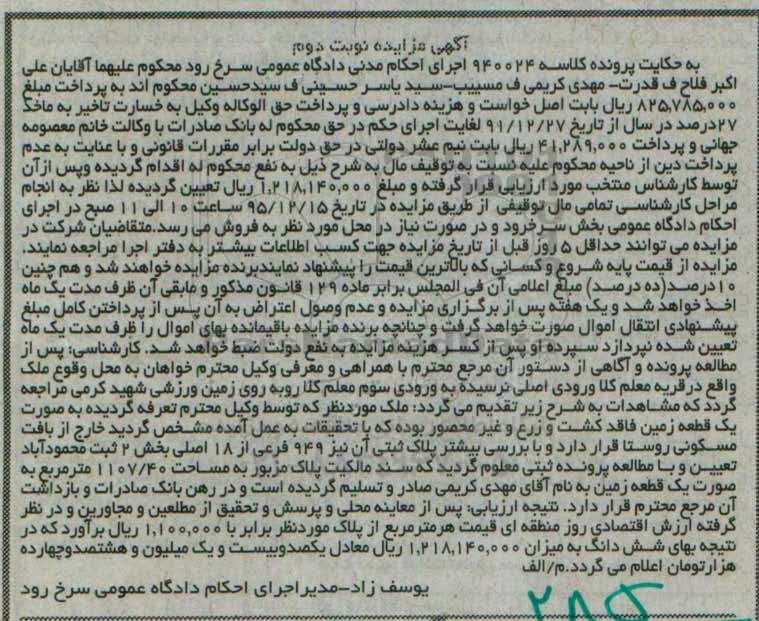 آگهی مزایده نوبت دوم
به حکایت پرونده کلاسه ۹۴۰۰۲۴ اجرای احکام مدنی دادگاه عمومی سرخ رود محکوم علیهما آقایان علی
اکبر فلاح ف قدرت- مهدی کریمی ف مسیب-سید یاسر حسینی ف سیدحسین محکوم اند به پرداخت مبلغ
۸۲۵,۷۸۵,۰۰۰ ریال بابت اصل خواست و هزینه دادرسی و پرداخت حق الوکاله وکیل به خسارت تاخیر به ماخذ
۲۷درصد در سال از تاریخ ۹۱/۱۲/۲۷ لغایت اجرای حکم در حق محکوم له بانک صادرات با وکالت خانم معصومه
جهانی و پرداخت ۴۱,۲۸۹,۰۰۰ ریال بابت نیم عشر دولتی در حق دولت برابر مقررات قانونی و با عنایت به عدم
پرداخت دین از ناحیه محکوم علیه نسبت به توقیف مال به شرح ذیل به نفع محکوم له اقدام گردیده وپس ازآن
توسط کارشناس منتخب مورد ارزیابی قرار گرفته و مبلغ ۱,۲۱۸,۱۴۰,۰۰۰ ریال تعیین گردیده لذا نظر به انجام
مراحل کارشناسی تمامی مال توقیفی از طریق مزایده در تاریخ ۹۵/۱۲/۱۵ ساعت ۱۰ الی ۱۱ صبح در اجرای
احکام دادگاه عمومی بخش سرخرود و در صورت نیاز در محل مورد نظر به فروش می رسد.متقاضیان شرکت در
مزایده می توانند حداقل ۵ روز قبل از تاریخ مزایده جهت کسب اطلاعات بیشتر به دفتر اجرا مراجعه نمایند.
مزایده از قیمت پایه شروع و کسانی که بالاترین قیمت را پیشنهاد نمایندبرنده مزایده خواهند شد و هم چنین
۱۰درصد(ده درصد) مبلغ اعلامی آن فی المجلس برابر ماده ۱۲۹ قانون مذکور و مابقی آن ظرف مدت یک ماه
اخذ خواهد شد و یک هفته پس از برگزاری مزایده و عدم وصول اعتراض به آن پس از پرداختن کامل مبلغ
پیشنهادی انتقال اموال صورت خواهد گرفت و چنانچه برنده مزایده باقیمانده بهای اموال را ظرف مدت یک ماه
تعیین شده نپردازد سپرده او پس از کسر هزینه مزایده به نفع دولت ضبط خواهد شد. کارشناسی: پس از
مطالعه پرونده و آگاهی از دستور آن مرجع محترم با همراهی و معرفی وکیل محترم خواهان به محل وقوع ملک
واقع درقریه معلم کلا ورودی اصلی نرسیده به ورودی سوم معلم کلا روبه روی زمین ورزشی شهید کرمی مراجعه
گردد که مشاهدات به شرح زیر تقدیم می گردد: ملک موردنظر که توسط وکیل محترم تعرفه گردیده به صورت
یک قطعه زمین فاقد کشت و زرع و غیر محصور بوده که با تحقیقات به عمل آمده مشخص گردید خارج از بافت
مسکونی روستا قرار دارد و با بررسی بیشتر پلاک ثبتی آن نیز ۹۴۹ فرعی از ۱۸ اصلی بخش ۲ ثبت محمودآباد
تعیین و با مطالعه پرونده ثبتی معلوم گردید که سند مالکیت پلاک مزبور به مساحت ۱۱۰۷/۴۰ مترمربع به
صورت یک قطعه زمین به نام آقای مهدی کریمی صادر و تسلیم گردیده است و در رهن بانک صادرات و بازداشت
آن مرجع محترم قرار دارد. نتیجه ارزیابی: پس از معاینه محلی و پرسش و تحقیق از مطلعین و مجاورین و در نظر
گرفته ارزش اقتصادی روز منطقه ای قیمت هرمترمربع از پلاک موردنظر برابر با ۱,۱۰۰,۰۰۰ ریال برآورد که در
نتیجه بهای شش دانگ به میزان ۱,۲۱۸,۱۴۰,۰۰۰ ریال معادل یکصدوبیست و یک میلیون و هشتصدوچهارده
هزارتومان اعلام می گردد.م/الف
یوسف زاد-مدیراجرای احکام دادگاه عمومی سرخ رود